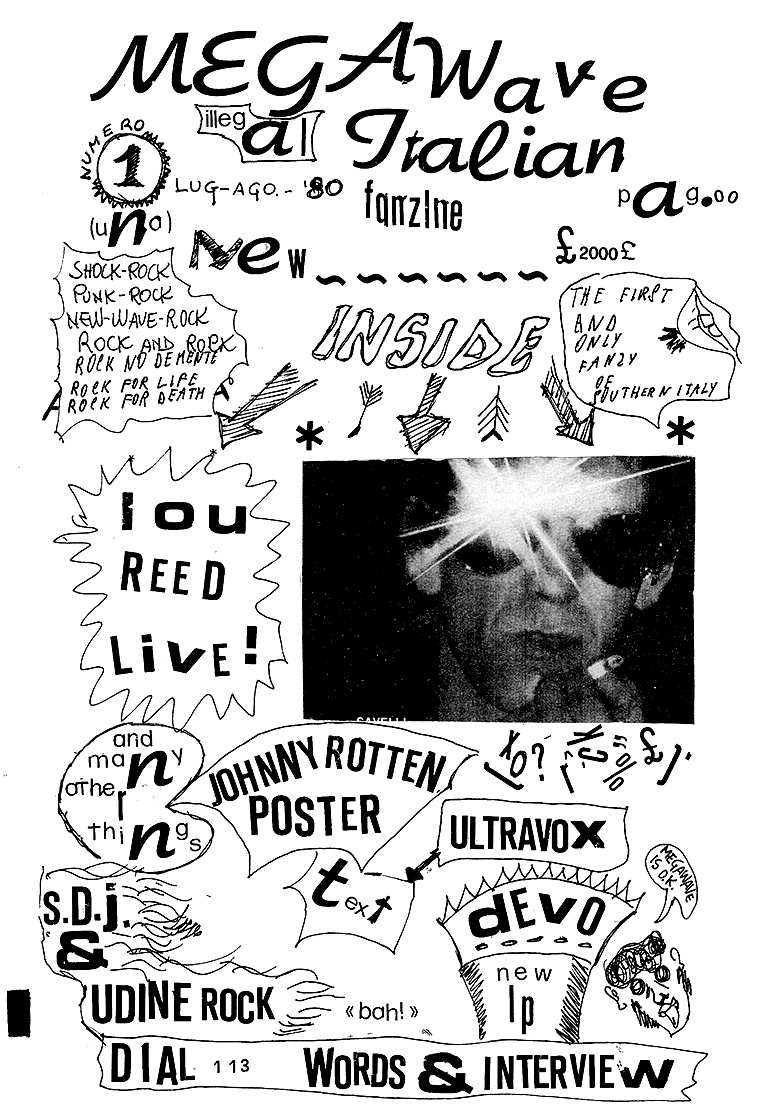 MEGAWave
Italian
fanzine
illegal
NUMERO
1
LUG-AGO.-'80
(una)
pag.00
New
£ 2000 £
SHOCK-ROCK
PUNK-ROCK
NEW-WAVE-ROCK
ROCK AND ROCK
ROCK NO DEMENTE
ROCK FOR LIFE
ROCK FOR DEATH
INSIDE
THE FIRST
AND
ONLY
FANZY
OF
SOUTHERN ITALY
lou
REED
LivE!
SAVELLI
and
many
other
things
JOHNNY ROTTEN
POSTER
ULTRAVOX
text
S.D.j.
&
dEVO
new
lp
MEGAWAVE
IS O.K.
UDINE ROCK
«bah!»
DIAL 113 WORDS & INTERVIEW